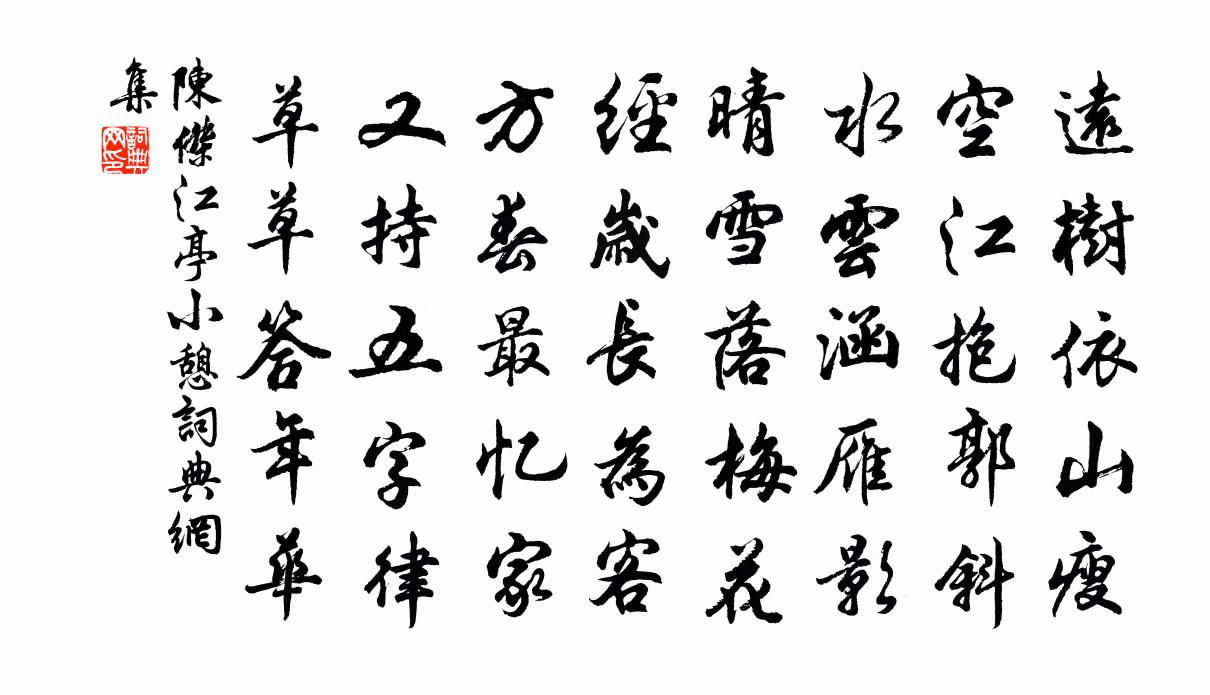 遠樹依山瘦
空江抱郭斜
水雲涵雁影
晴雪落梅花
經歲長為客
方春最忆家
又持五字律
草草答年華
陳傑江亭小憩詞典網
集
詞典
网印